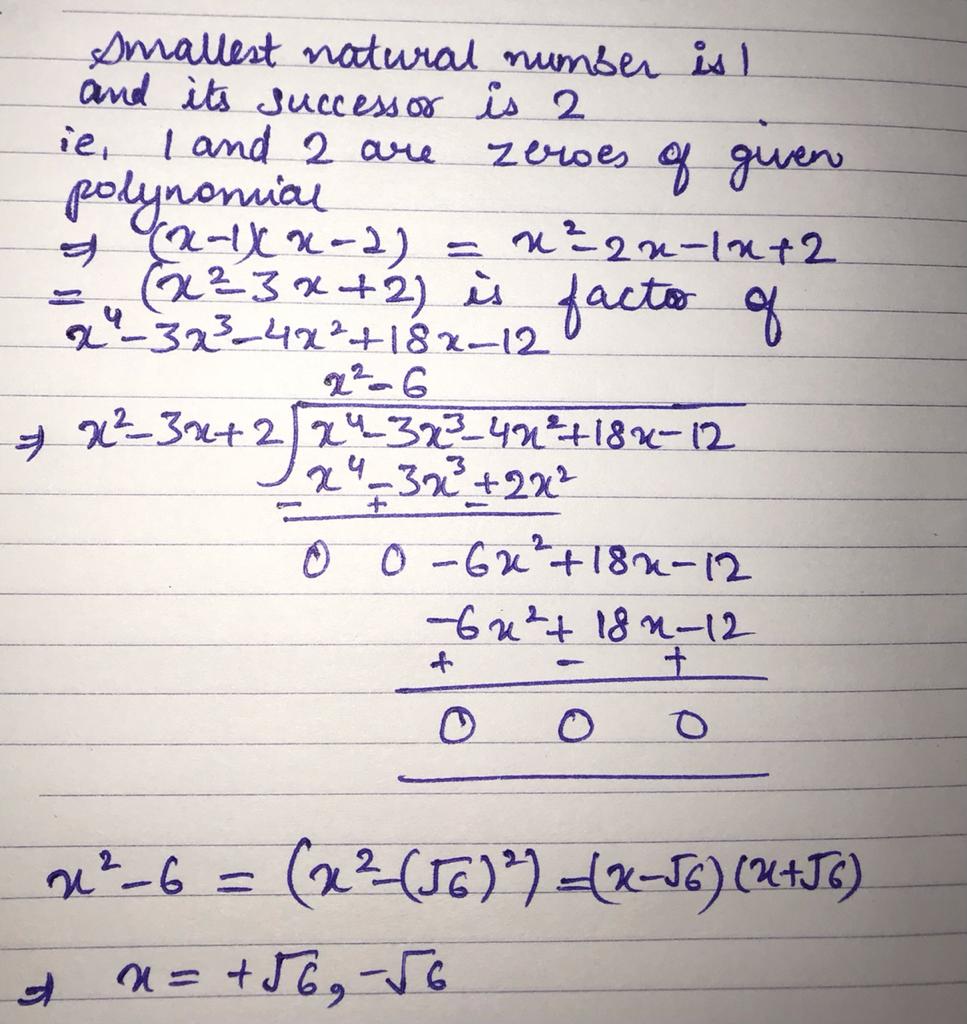 Smallest natural number is 1
and its successor is 2
ie, 1 and 2 are zeroes of given
polynomial
⇒ (x-1)(x-2) = x²-2x-1x+2
= (x²-3x+2) is factor of
x⁴-3x³-4x²+18x-12
x²-6
⇒ x²-3x+2) x⁴-3x³-4x²+18x-12
x⁴-3x³+2x²
- + -
0 0 -6x²+18x-12
-6x²+18x-12
+ - +
0 0 0
x²-6 = (x²-(√6)²) =(x-√6)(x+√6)
⇒ x = +√6, -√6